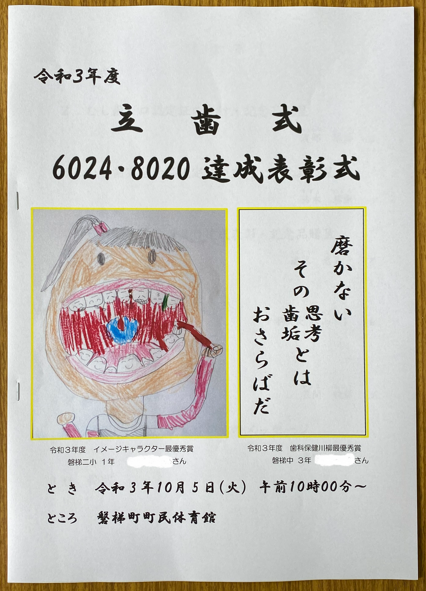 令和3年度
立歯式
6024・8020 達成表彰式
磨かない
その思考とは
歯垢
おさらばだ
令和3年度 イメージキャラクター最優秀賞
磐梯二小 1年 さん
令和3年度 歯科保健川柳最優秀賞
磐梯中 3年 さん
とき 令和3年10月5日(火) 午前10時00分～
ところ 磐梯町町民体育館